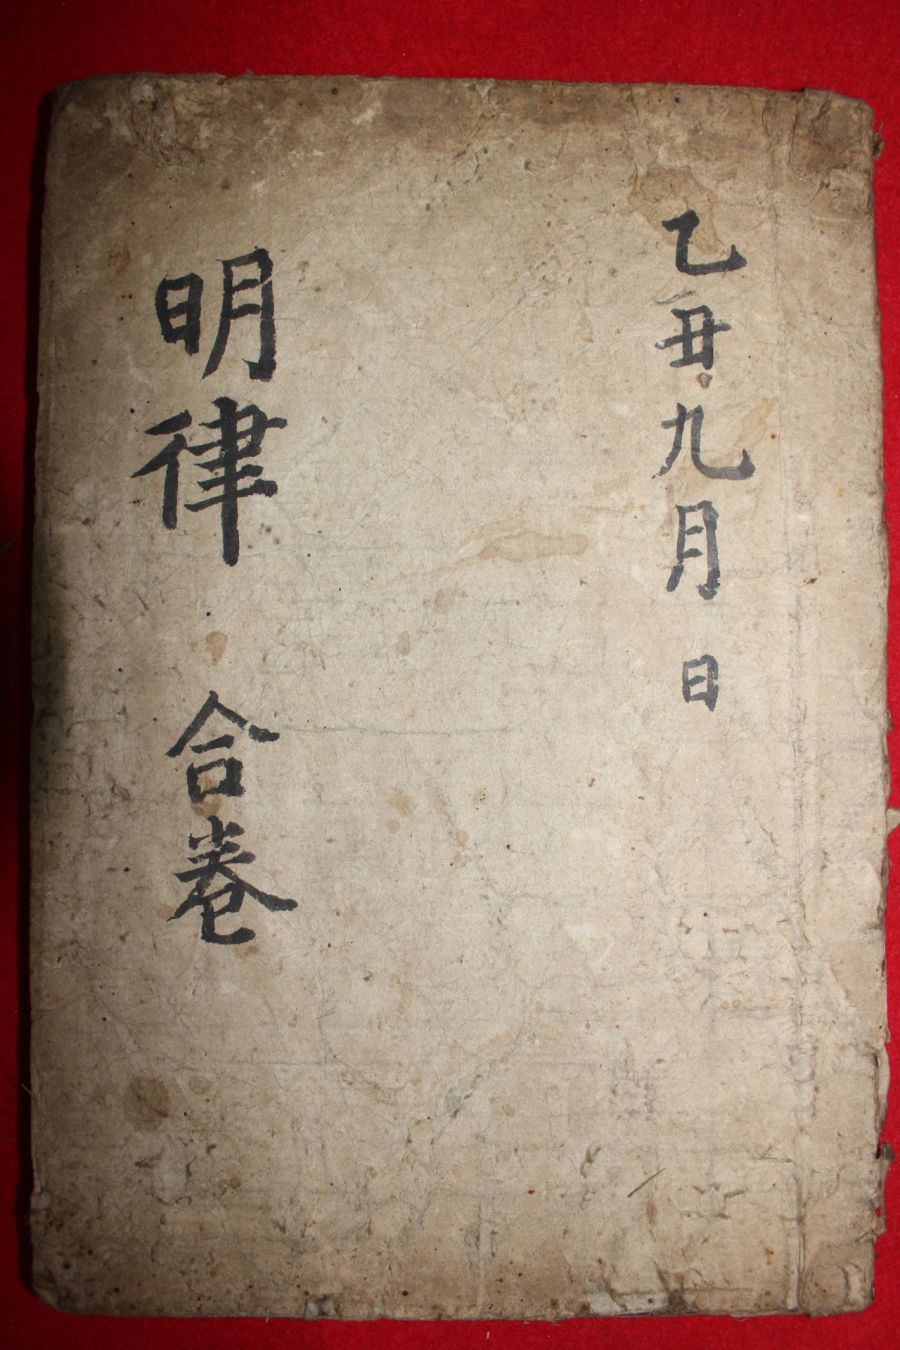 乙丑九月 日
明律 合卷